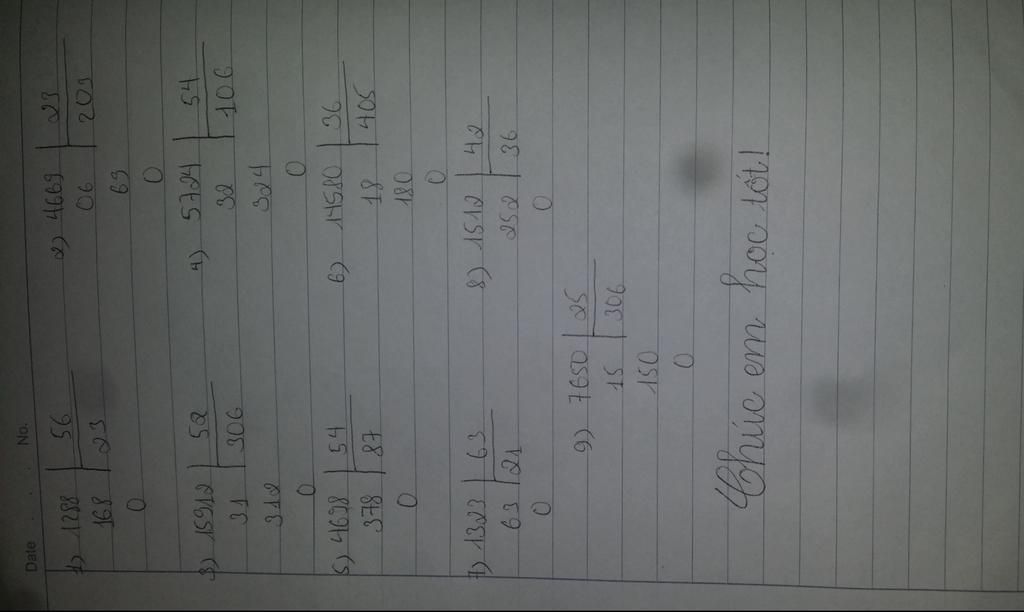 Date . . . No.
1) 1288 | 56 2) 4669 | 23
168 | 23 06 | 203
0 69
0
3) 15912 | 52 4) 5724 | 54
31 | 306 32 | 106
312 324
0 0
5) 4698 | 54 6) 14580 | 36
378 | 87 18 | 405
0 180
0
7) 1323 | 63 8) 1512 | 42
63 | 21 252 | 36
0 0
9) 7650 | 25
15 | 306
150
0
Chúc em học tốt!